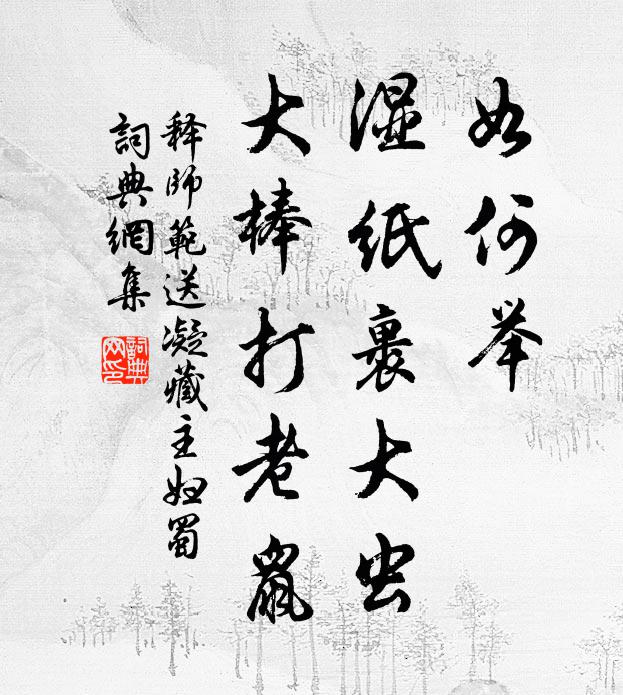 如何举
湿紙裹大虫
大棒打老鼠
释師範送凝藏主归蜀
詞典網集
詞典网印